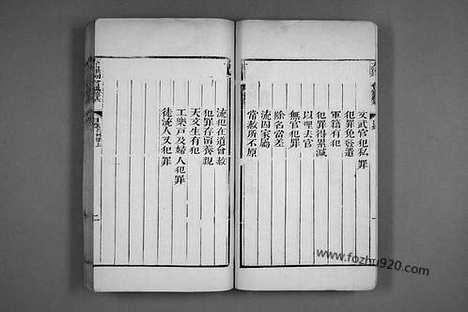 文武官犯私罪
犯罪免發遣
軍籍有犯
犯罪得累減
以理去官
無官犯罪
除名當差
流囚家屬
常赦所不原
流犯在道會赦
犯罪存留養親
天文生有犯
工樂戶及婦人犯罪
徒流人又犯罪
二
www.fozhu920.com